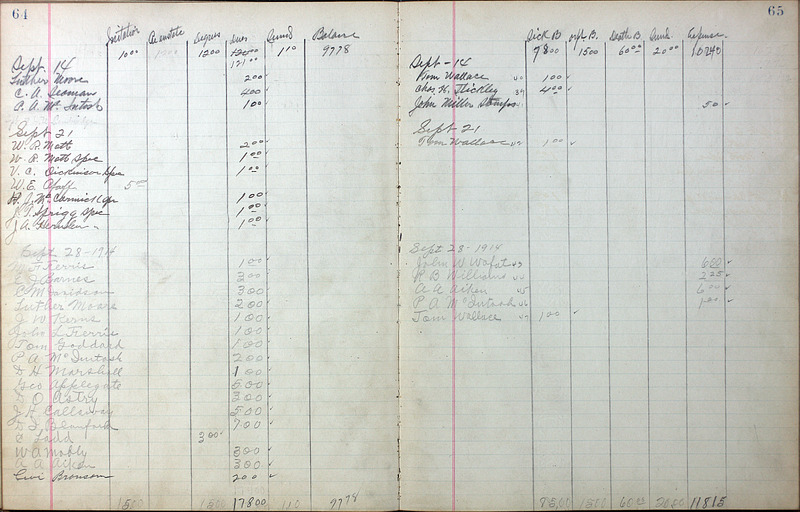 64
Initiation Reinstate Degrees Dues Fund Balance
10 00 12 00 120 00 1 10 97 78
171 00
Sept. 14
Luther Moore 2 00
C. A. Seaman 4 00
P. A. McIntosh 1 00
Sept 21
W. R. Moth 2 00
W. R. Moth Spec 1 00
V. C. Dickinson Spc 1 00
W. E. 5 00
H. J. McCormick Spc 1 00
J. T. Sprigg Spec 1 00
J. A. 1 00
Sept 28-1914
Ferrie 1 00
Barnes 3 00
C M Davidson 3 00
Luther Moore 2 00
J W Kerns 1 00
John L Ferrie 1 00
Tom Goddard 1 00
P A McIntosh 2 00
D. H Marshall 1 00
Geo Applegate 5 00
D. O Astry 3 00
J H Callaway 5 00
D. J. Blanford 7 00
C Ladd 3 00
W A Mobly 3 00
A A Aiken 3 00
Levi Bronson 2 00
15 00 15 00 178 00 1 10 97 78
65
Sick B. Death B. Expense
78 00 15 00 60 00 20 00 102 40
Sept-14
Tom Wallace 1 00
Chas. H. Stickley 4 00
John Miller Stamps 50
Sept 21
Tom Wallace 1 00
Sept 28-1914
John W 6 00
P B Williams 2 25
A A Aiken 6 00
P A McIntosh 1 00
Tom Wallace 1 00
15 00 60 00 20 00 118 15